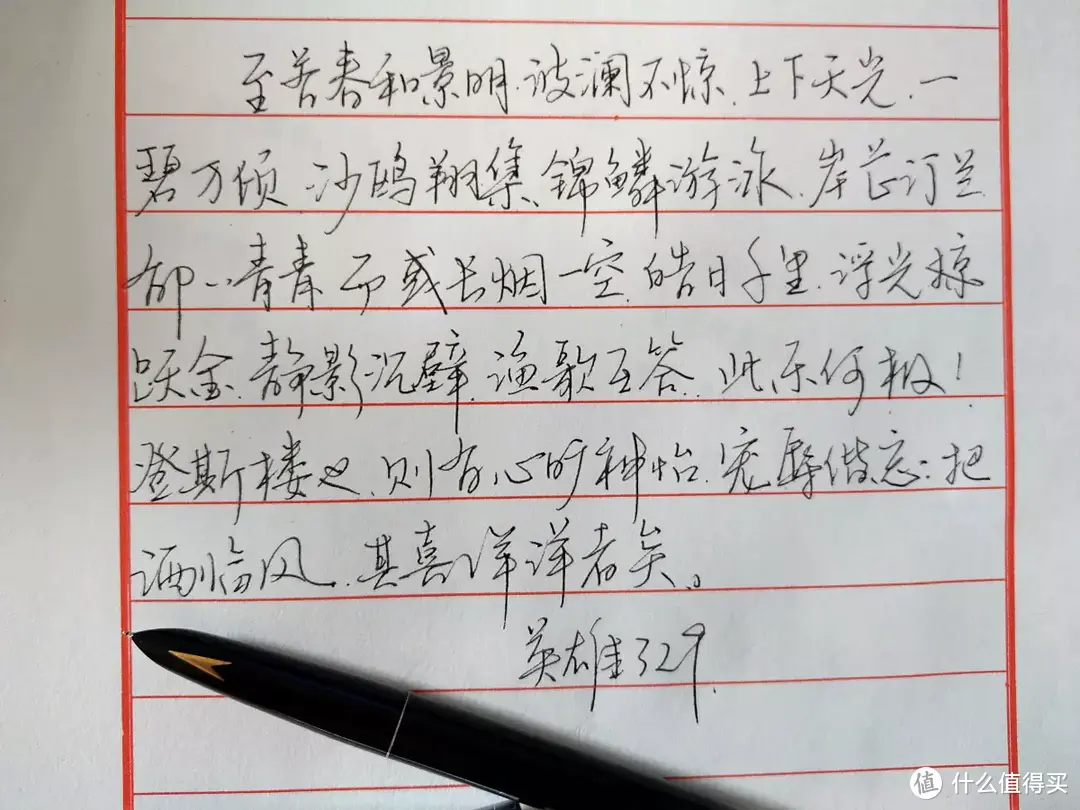 至若春和景明.波澜不惊.上下天光.一
碧万倾.沙鸥翔集.锦鳞游泳.岸芷汀兰
郁々青青.而或长烟一空.皓月千里.浮光掠
跃金.静影沉壁.渔歌互答.此乐何极!
登斯楼也.则有心旷神怡.宠辱偕忘.把
酒临风.其喜洋洋者矣。
英雄329.
值 什么值得买